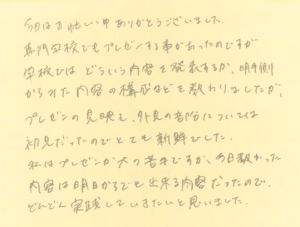 今日はお忙しい中ありがとうございました。
専門学校でもプレゼンする事があったのですが
学校では どういう内容を発表するか、
内容の構成などを教わりましたが、
プレゼンの見映え、外見の部分については
初見だったのでとても新鮮でした。
私はプレゼンが大の苦手ですが、今日教わった
内容は明日からでも出来る内容だったので、
どんどん実践していきたいと思いました。